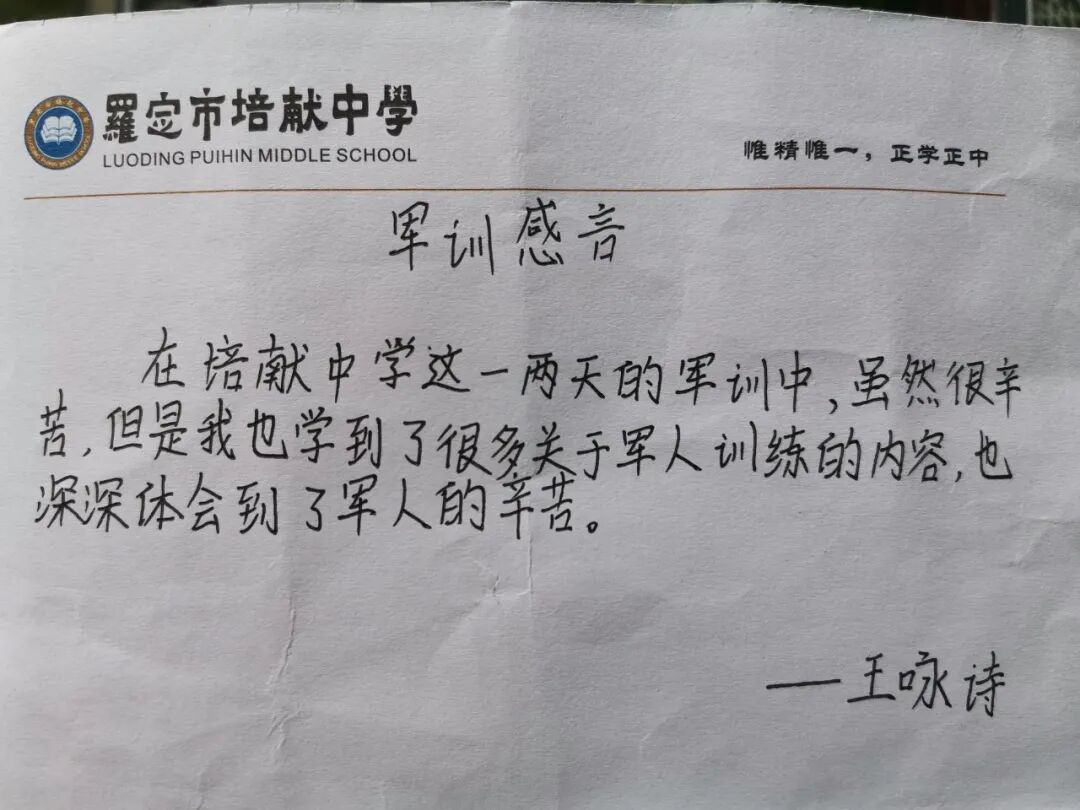 羅定市培献中學
LUODING PUIHIN MIDDLE SCHOOL
惟精惟一，正学正中
军训感言
在培献中学这一两天的军训中，虽然很辛
苦，但是我也学到了很多关于军人训练的内容，也
深深体会到了军人的辛苦。
——王咏诗